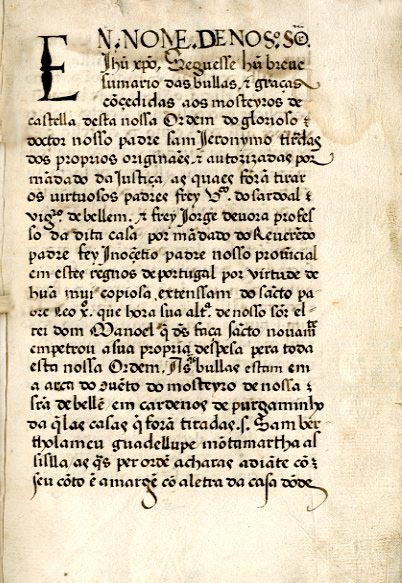 EN. NOME. DE NOSº. Sõr.
Jhũ xpõ, Seguesse hũ breue
sumario das bullas, ⁊ graças
cõçedidas aos mosteyros de
castella desta nossa Ordem do glorioso ⁊
doctor nosso padre sam Jeronymo tirãdas
dos proprios originaẽs. ⁊ autorizadas por
mãdado da Justiça, as quaes forã tirar
os virtuosos padres frey Vco. do sardoal ⁊
vigro. de bellem. ⁊ frey Jorge deuora profes
so da dita casa por mãdado do Reuerẽdo
padre fey Jnocẽtio padre nosso prouĩcial
em estes regnos de portugal por virtude de
huã mui copiosa extenssam do sãcto pa-
dre Leo xº. que hora sua altª. de nosso sõr el-
rei dom Manoel q̃ ds̃ faça sãcto nouamẽ
empetrou a sua propria despesa pera toda
esta nossa Ordem. As q̃s bullas estam em
a arca do cõuẽto do mosteyro de nossa ⁊
srã de bellẽ em cardenos de purgaminho
da q̃las casas q̃ forã tiradas. s. Sam ber
tholameu guadellupe mõtamartha al
sislla as q̃s per ordẽ acharas adiãte cõ ⁊
seu cõto ẽ a margẽ cõ a letra da casa dõde